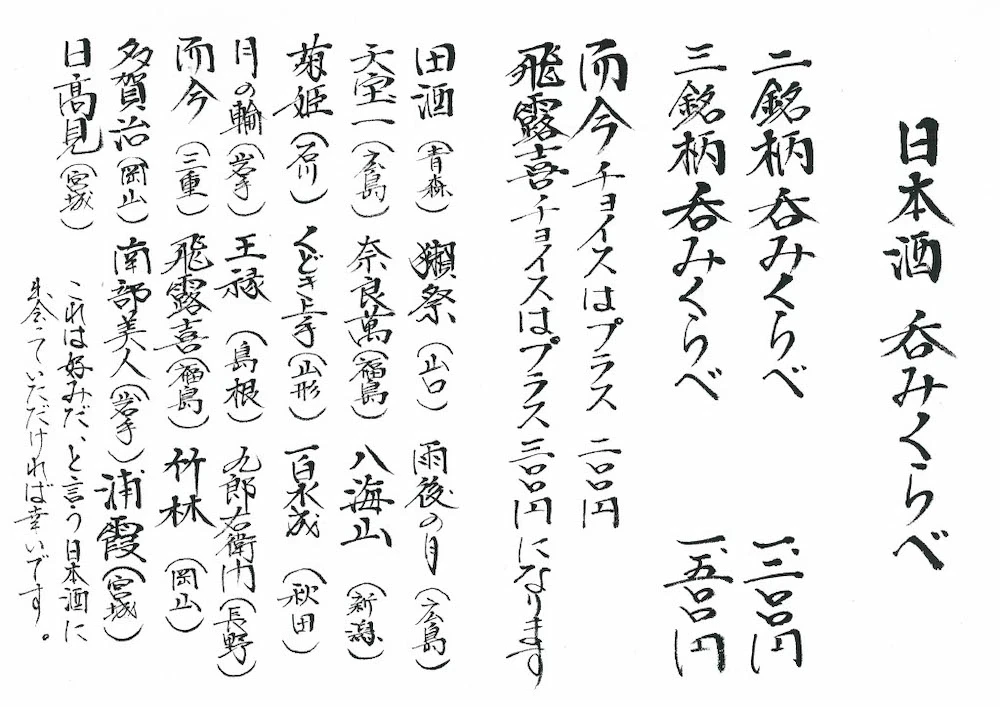 日本酒 呑みくらべ
二銘柄呑みくらべ 一、三〇〇円
三銘柄呑みくらべ 一、五〇〇円
而今チョイスはプラス 二〇〇円
飛露喜チョイスはプラス 三〇〇円になります
田酒(青森) 獺祭(山口) 雨後の月(広島)
天宝一(広島) 奈良萬(福島) 八海山(新潟)
菊姫(石川) くどき上手(山形) 一白水成(秋田)
月の輪(岩手) 王禄(島根) 九郎右衛門(長野)
而今(三重) 飛露喜(福島) 竹林(岡山)
多賀治(岡山) 南部美人(岩手) 浦霞(宮城)
日高見(宮城)
これは好みだ、と言う日本酒に
出会っていただければ幸いです。